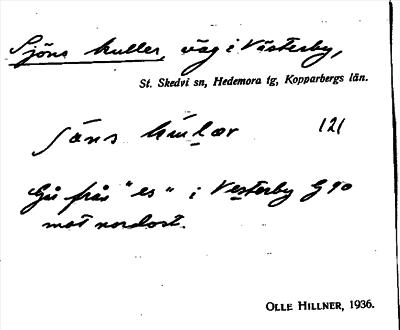 Sjöns kullar, väg i Västerby,
St. Skedvi sn, Hedemora tg, Kopparbergs län.
121
Gå från "es" i Vesterby G 90
mot nordost.
OLLE HILLNER, 1936.